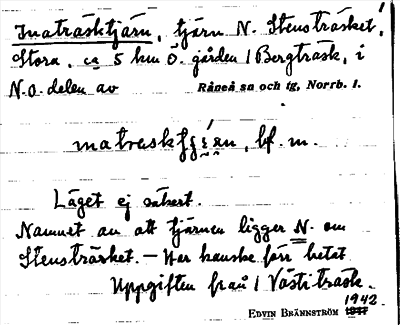 Inaträsktjärn, tjärn N. Stensträsket,
Stora, ca 5 km Ö. gården 1 Bergträsk, i
N.O. delen av Råneå sn och tg, Norrb. l.
bf. m.
Läget ej säkert.
Namnet av att tjärnen ligger N. om
Stensträsket. — Har kanske förr hetat
Uppgiften från 1 Västiträsk.
1942.
EDVIN BRÄNNSTRÖM 1917